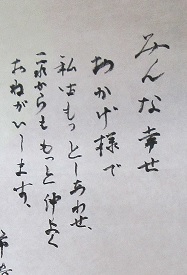 みんな幸せ
おかげ様で
私はもっとしあわせ、
これからももっと仲よく
おねがいします。